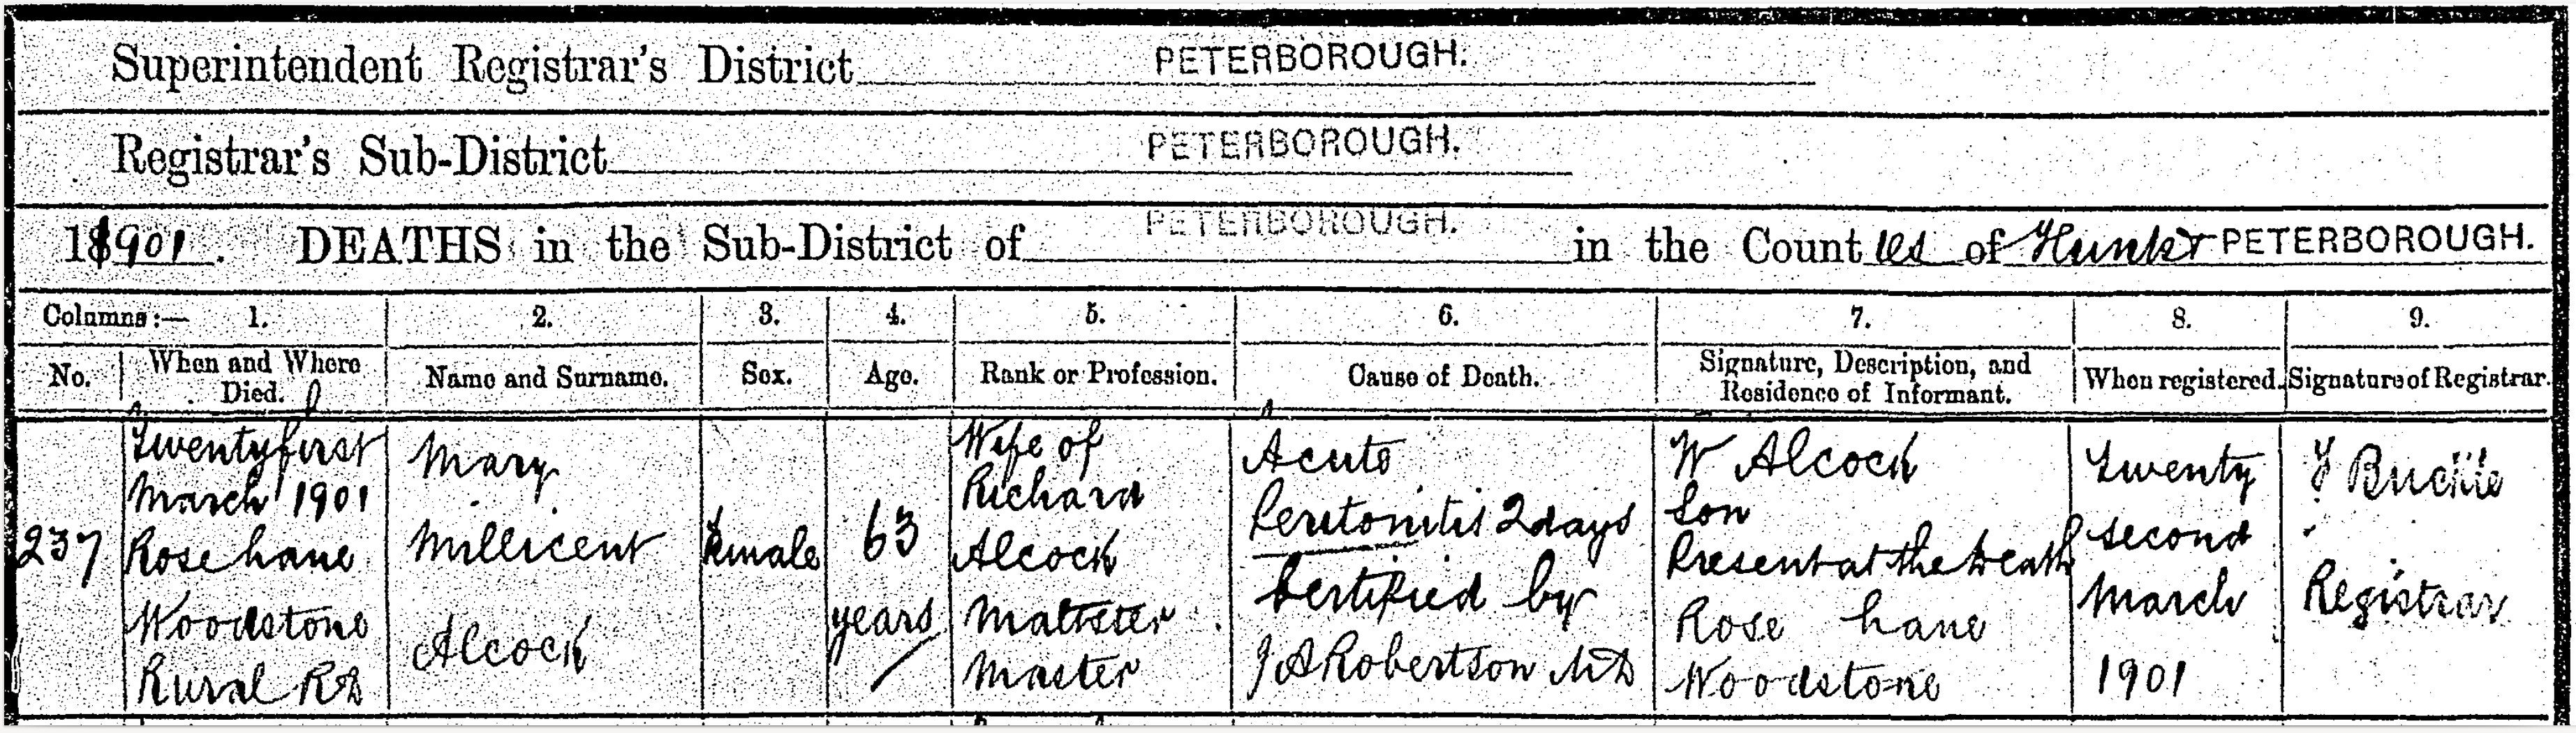 Superintendent Registrar's District PETERBOROUGH.
Registrar's Sub-District PETERBOROUGH.
1901. DEATHS in the Sub-District of PETERBOROUGH. in the Counties of Hunts & PETERBOROUGH.
Columns:— 1. 2. 3. 4. 5. 6. 7. 8. 9.
No. When and Where Died. Name and Surname. Sex. Age. Rank or Profession. Cause of Death. Signature, Description, and Residence of Informant. When registered. Signature of Registrar.
237
Twenty first
March 1901
Rose Lane
Woodstone
Rural RD
Mary
Millicent
Alcock
Female
63
years
Wife of
Richard
Alcock
Maltster
Master
Acute
Peritonitis 2 days
Certified by
J A Robertson MD
W Alcock
Son
Present at the Death
Rose Lane
Woodstone
Twenty
second
March
1901
Buckle
Registrar